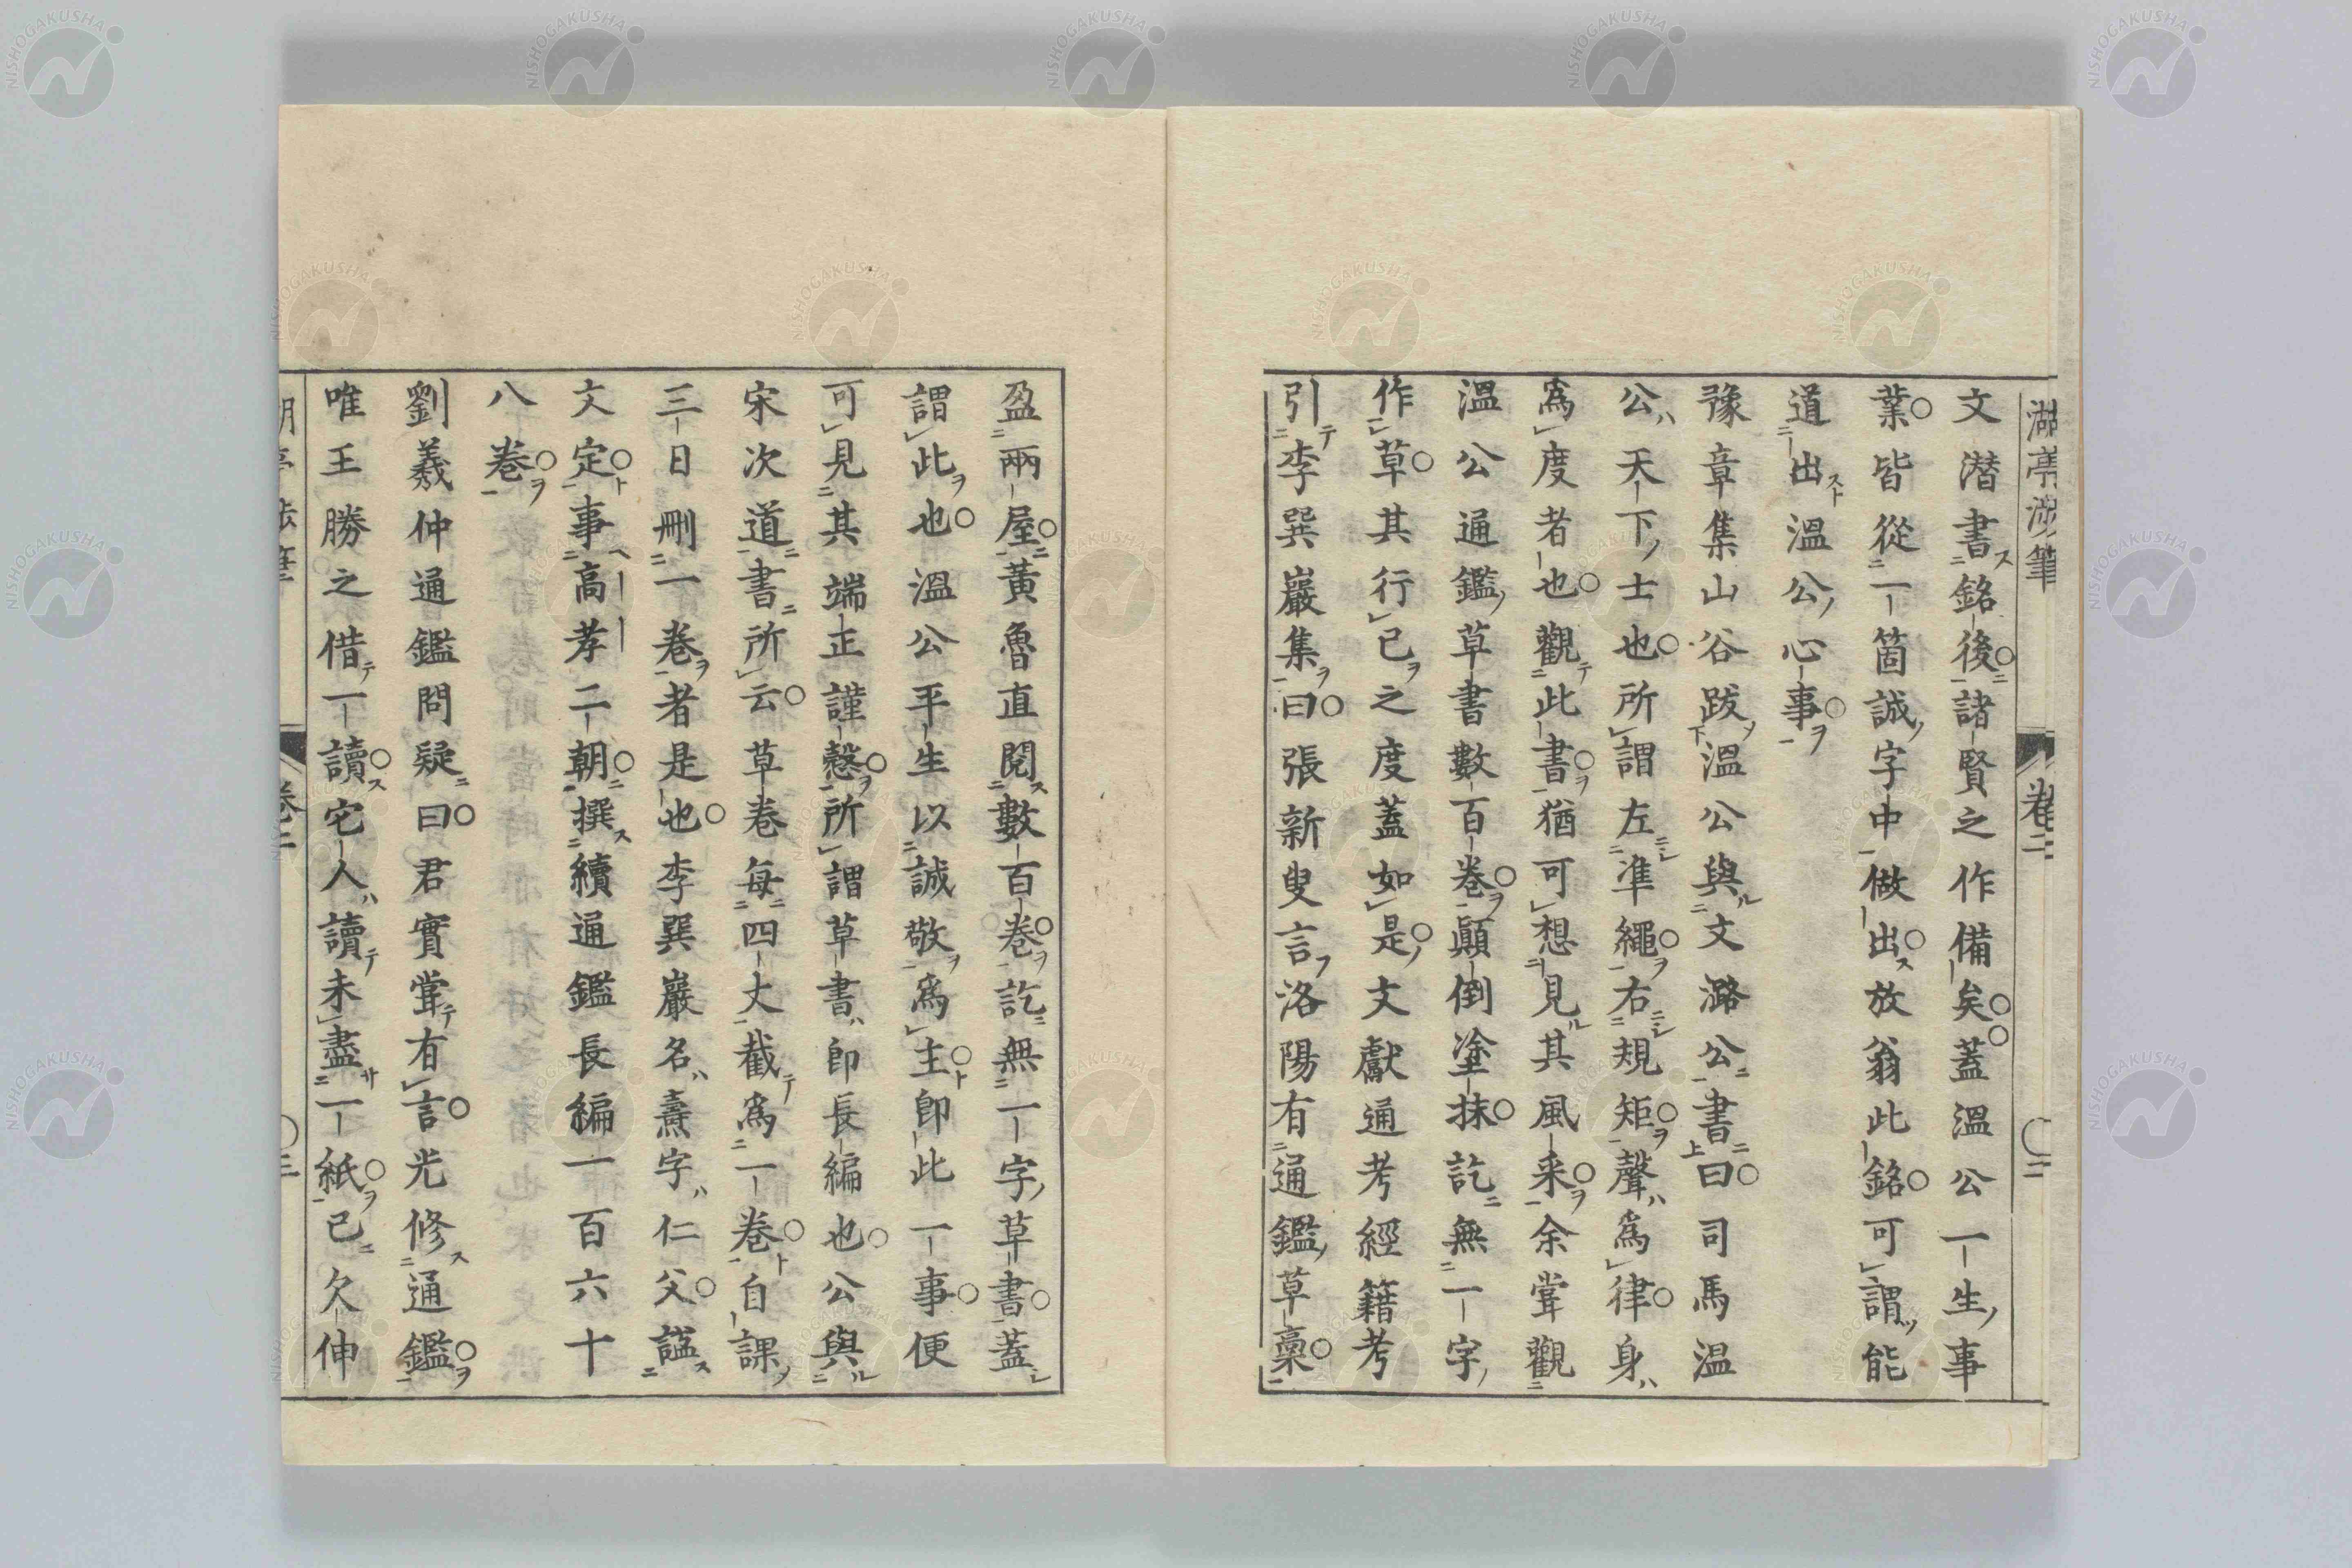 湖亭涉筆 卷二 〇二
文潛書銘後諸賢之作備矣蓋溫公一生事
葉皆從一箇誠字中做出放翁此銘可謂能
道出溫公心事
豫章集山谷跋溫公與文潞公書曰司馬溫
公天下士也所謂左準繩右規矩聲爲律身
爲度者也觀此書猶可想見其風采余甞觀
溫公通鑑草書數百卷顚倒塗抹訖無一字
作草其行已之度蓋如是文獻通考經籍考
引李巽巖集曰張新叟言洛陽有通鑑草藁
盈兩屋黃魯直閱數百卷訖無一字草書蓋
謂此也溫公平生以誠敬爲主卽此一事便
可見其端正謹慤所謂草書卽長編也公與
宋次道書所云草卷每四丈截爲一卷自課
三日刪一卷者是也李巽巖名燾字仁父謚
文定事高孝二朝撰續通鑑長編一百六十
八卷
劉羲仲通鑑問疑曰君實甞有言光修通鑑
唯王勝之借一讀它人讀未盡一紙已欠伸
卷二 〇三
NISHOGAKUSHA